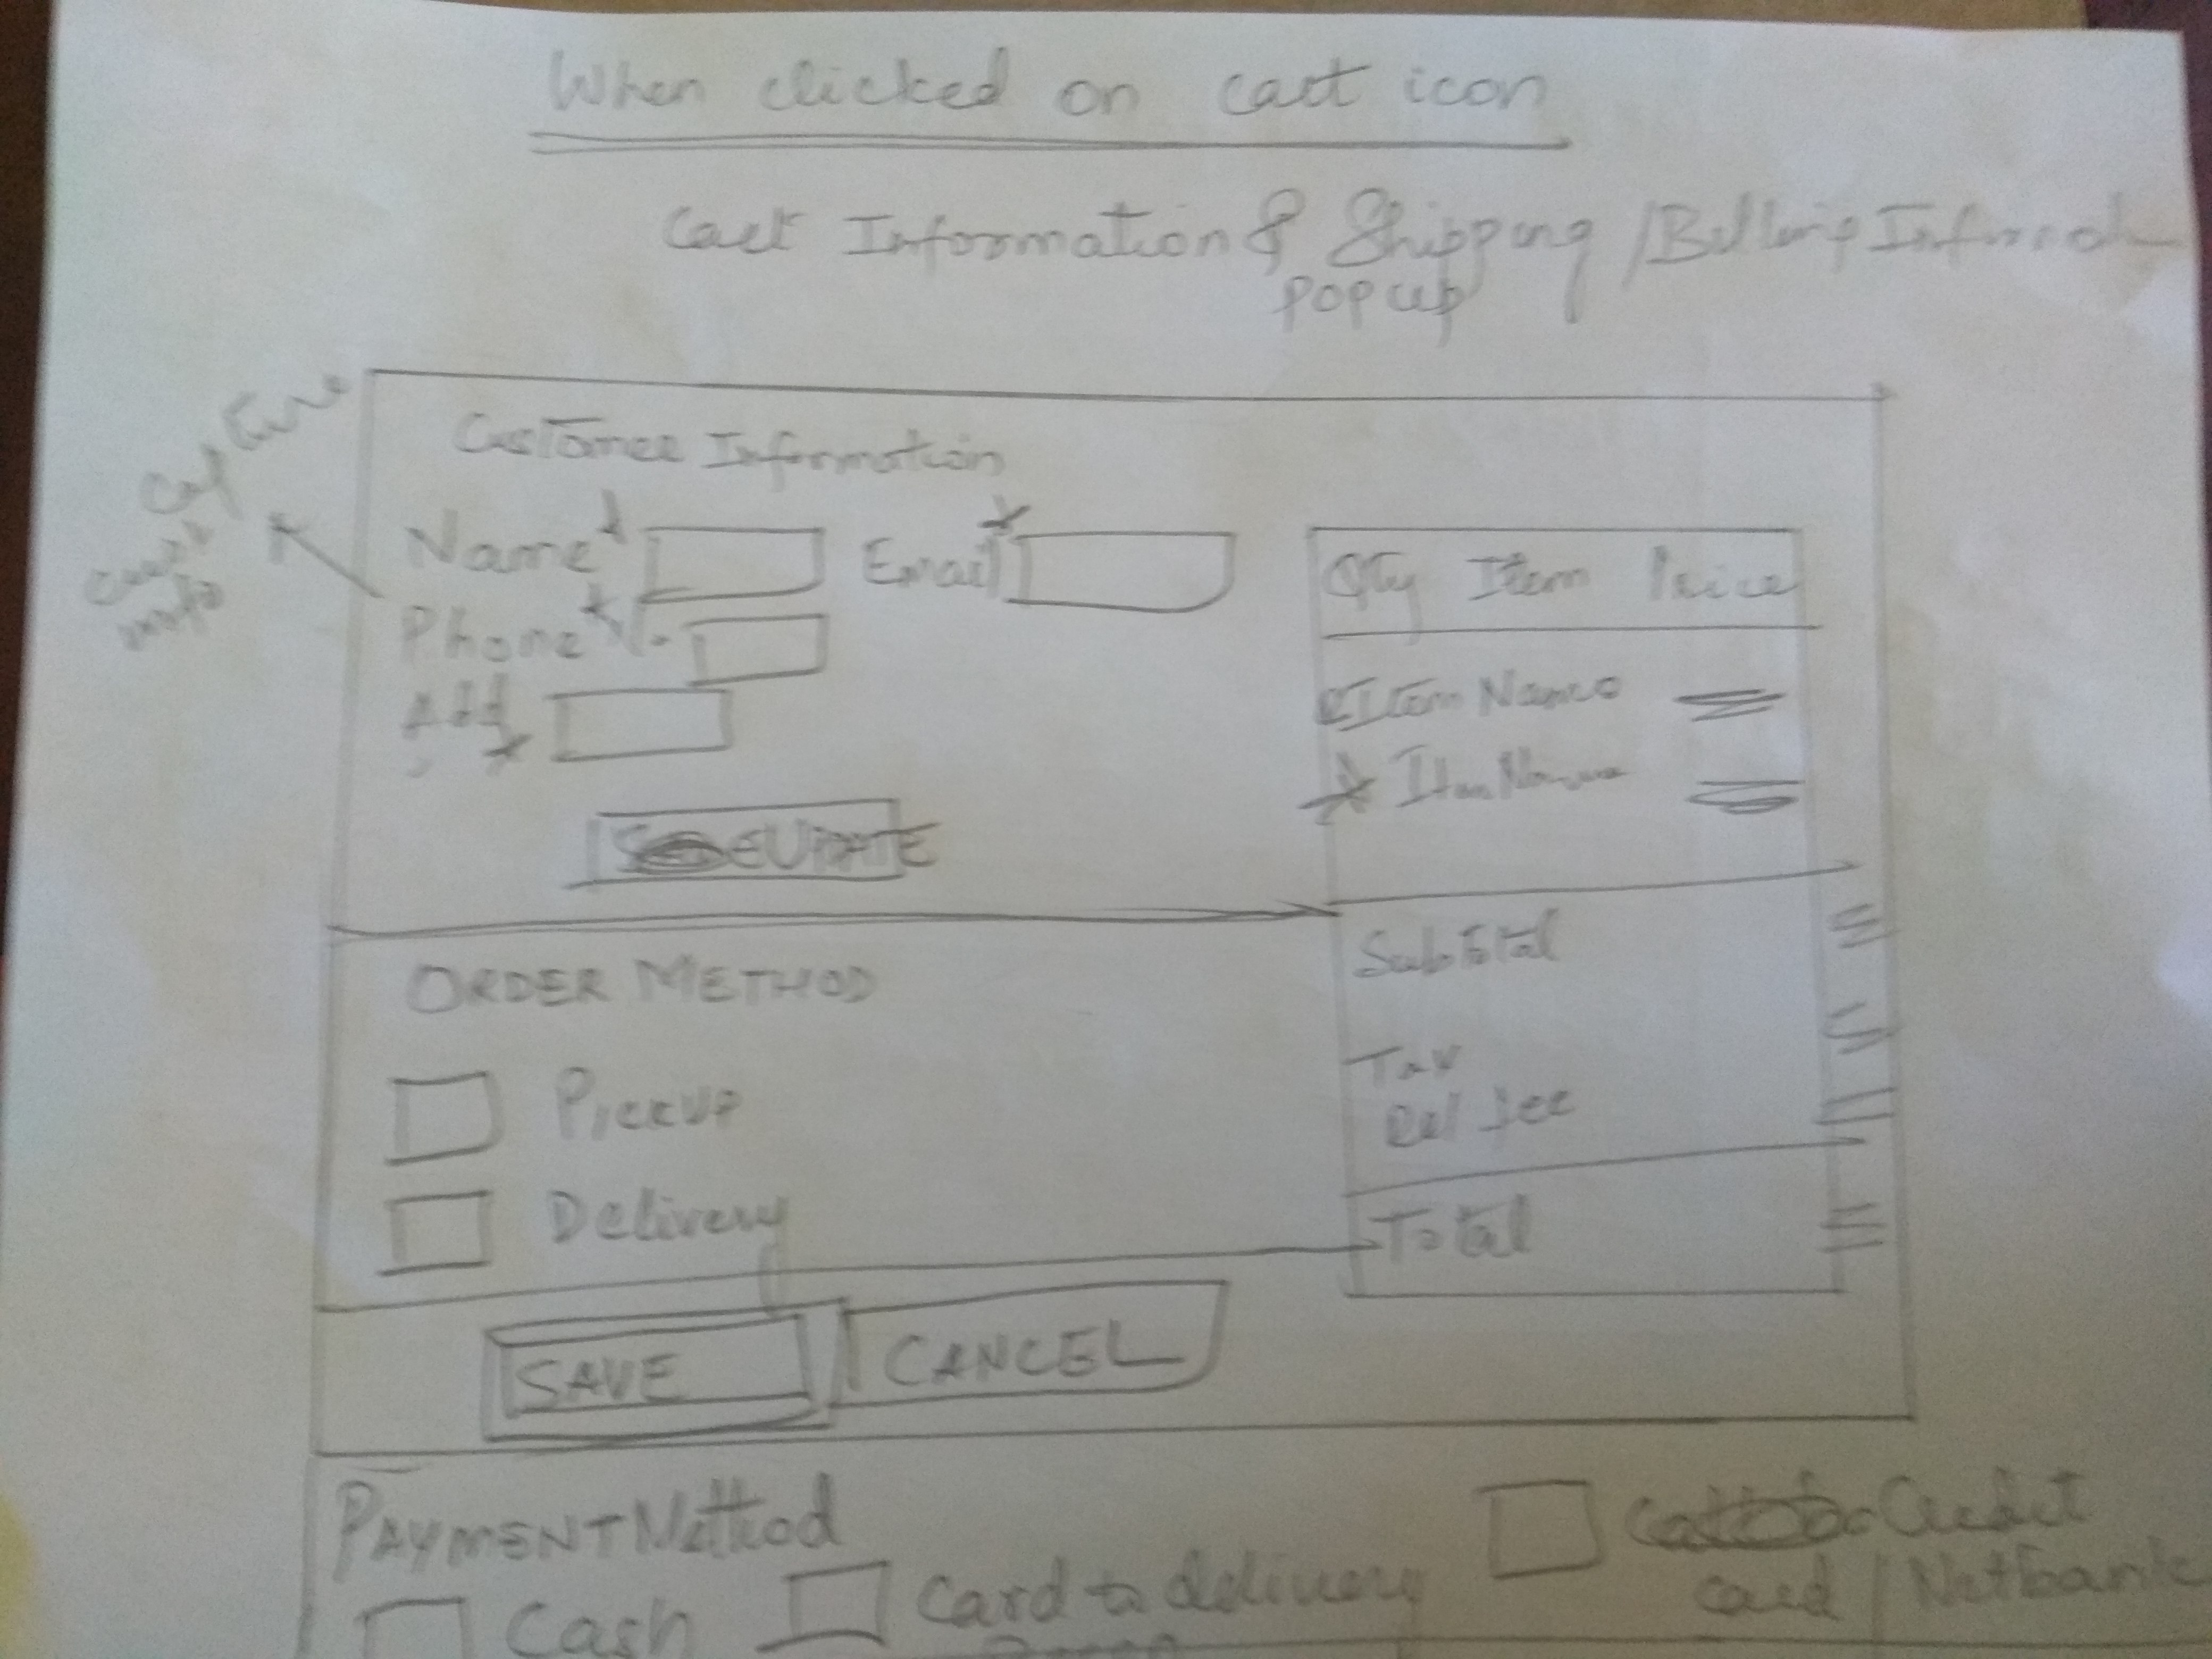 When clicked on cart icon
Cart Information & Shipping / Billing Informat
Popup
Capture
Cust
info
Customer Information
Name* Email*
Phone*
Add*
UPDATE
Qty Item Price
Item Name
Item Name
Sub Total
Tax
Del fee
Total
ORDER METHOD
PICKUP
Delivery
SAVE CANCEL
PAYMENT Method
Cash
Card to delivery
Credit
card / Netbank